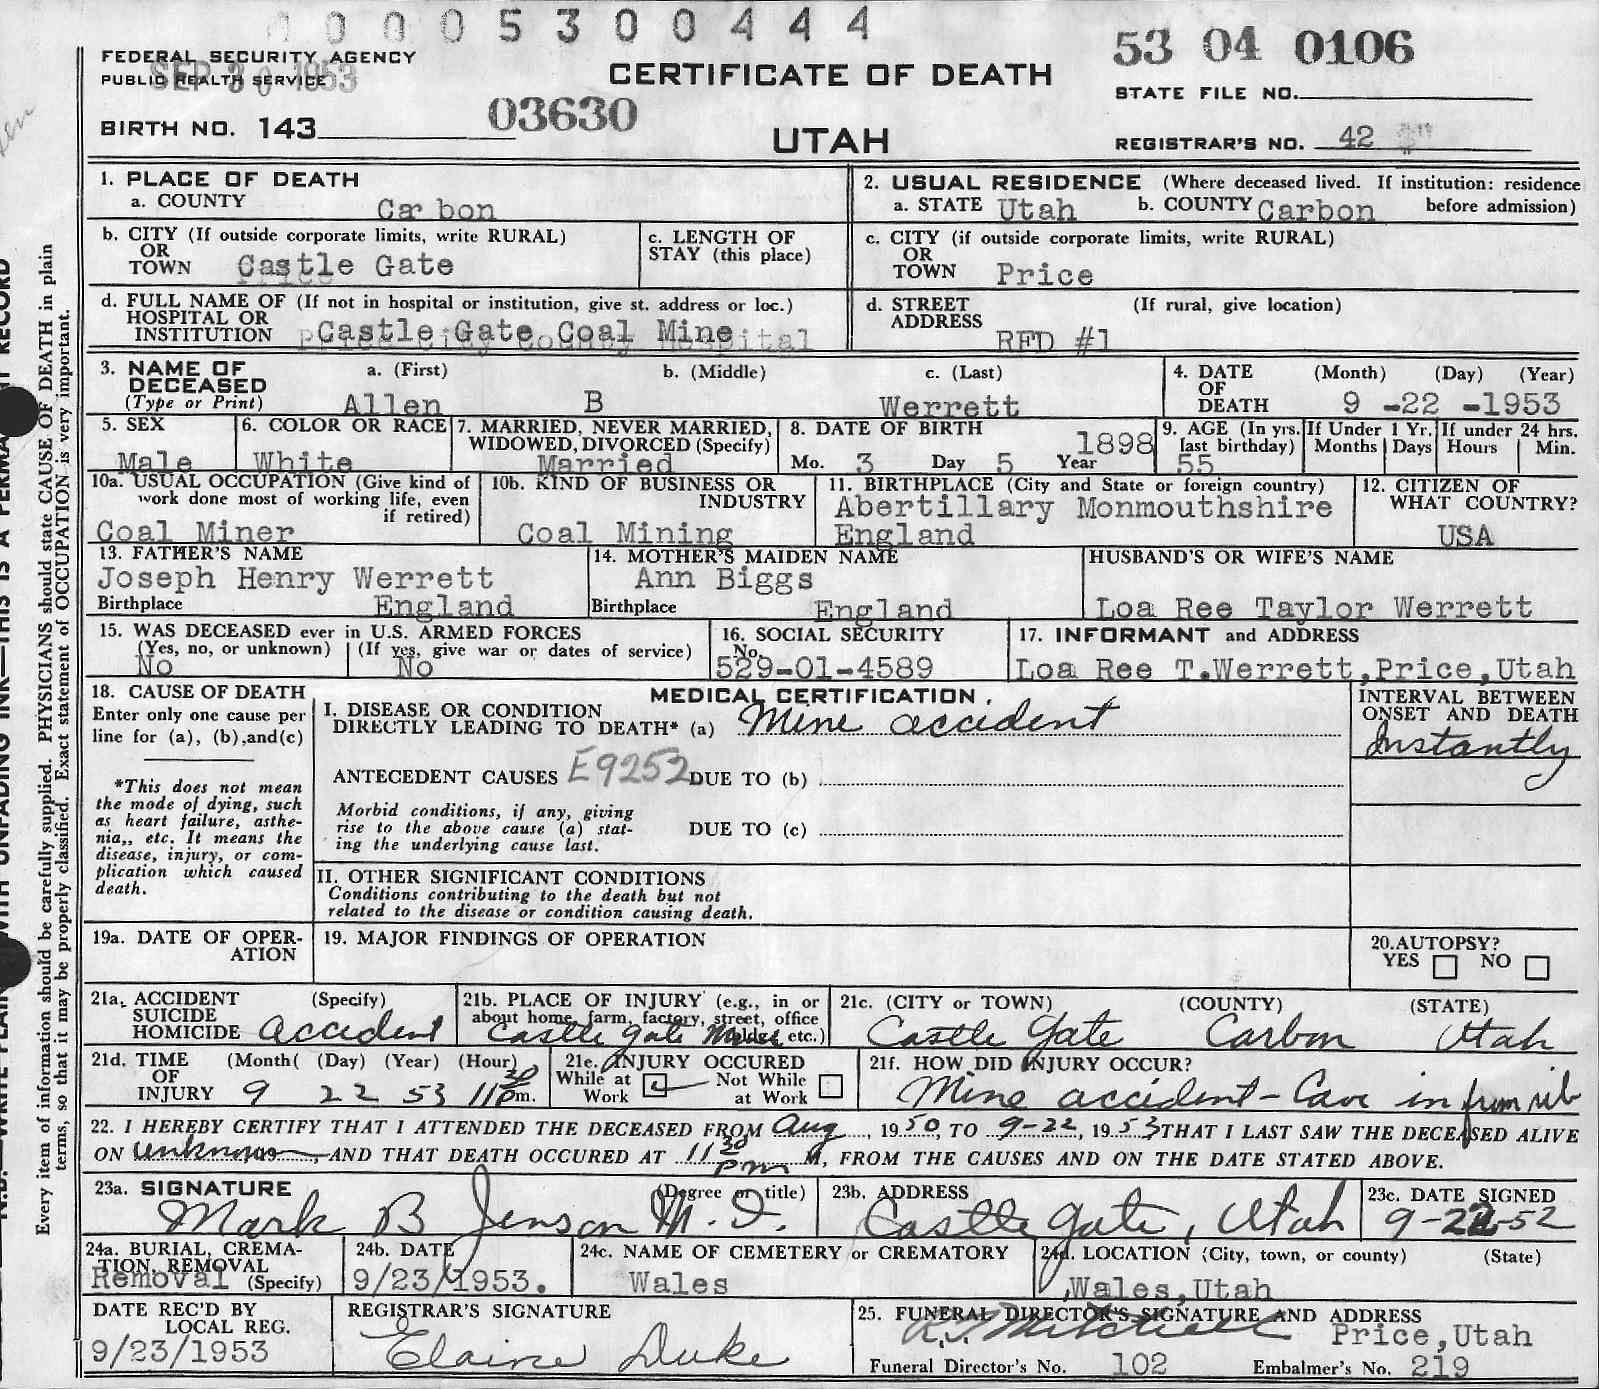 0 0 0 0 5 3 0 0 4 4 4
FEDERAL SECURITY AGENCY
PUBLIC HEALTH SERVICE
SEP 30 1953
CERTIFICATE OF DEATH
UTAH
53 04 0106
STATE FILE NO.
BIRTH NO. 143
03630
REGISTRAR'S NO. 42
1. PLACE OF DEATH
a. COUNTY Carbon
2. USUAL RESIDENCE (Where deceased lived. If institution: residence before admission)
a. STATE Utah b. COUNTY Carbon
b. CITY (If outside corporate limits, write RURAL)
OR
TOWN Castle Gate
c. LENGTH OF
STAY (this place)
c. CITY (if outside corporate limits, write RURAL)
OR
TOWN Price
d. FULL NAME OF (If not in hospital or institution, give st. address or loc.)
HOSPITAL OR
INSTITUTION Castle Gate Coal Mine
d. STREET (If rural, give location)
ADDRESS RFD #1
3. NAME OF a. (First) b. (Middle) c. (Last)
DECEASED
(Type or Print) Allen B Werrett
4. DATE (Month) (Day) (Year)
OF
DEATH 9 -22 -1953
5. SEX
Male
6. COLOR OR RACE
White
7. MARRIED, NEVER MARRIED,
WIDOWED, DIVORCED (Specify)
Married
8. DATE OF BIRTH
Mo. 3 Day 5 Year 1898
9. AGE (In yrs. last birthday)
55
If Under 1 Yr.
Months Days
If under 24 hrs.
Hours Min.
10a. USUAL OCCUPATION (Give kind of
work done most of working life, even
if retired)
Coal Miner
10b. KIND OF BUSINESS OR
INDUSTRY
Coal Mining
11. BIRTHPLACE (City and State or foreign country)
Abertillary Monmouthshire
England
12. CITIZEN OF
WHAT COUNTRY?
USA
13. FATHER'S NAME
Joseph Henry Werrett
Birthplace England
14. MOTHER'S MAIDEN NAME
Ann Biggs
Birthplace England
HUSBAND'S OR WIFE'S NAME
Loa Ree Taylor Werrett
15. WAS DECEASED ever in U.S. ARMED FORCES
(Yes, no, or unknown) (If yes, give war or dates of service)
No No
16. SOCIAL SECURITY
No.
529-01-4589
17. INFORMANT and ADDRESS
Loa Ree T.Werrett,Price,Utah
18. CAUSE OF DEATH
Enter only one cause per
line for (a), (b),and(c)
*This does not mean
the mode of dying, such
as heart failure, asthe-
nia,, etc. It means the
disease, injury, or com-
plication which caused
death.
MEDICAL CERTIFICATION
I. DISEASE OR CONDITION
DIRECTLY LEADING TO DEATH* (a) Mine accident
ANTECEDENT CAUSES E9252 DUE TO (b)
Morbid conditions, if any, giving
rise to the above cause (a) stat-
ing the underlying cause last.
DUE TO (c)
II. OTHER SIGNIFICANT CONDITIONS
Conditions contributing to the death but not
related to the disease or condition causing death.
INTERVAL BETWEEN
ONSET AND DEATH
Instantly
19a. DATE OF OPER-
ATION
19. MAJOR FINDINGS OF OPERATION
20. AUTOPSY?
YES NO
21a. ACCIDENT (Specify)
SUICIDE
HOMICIDE accident
21b. PLACE OF INJURY (e.g., in or
about home, farm, factory, street, office
etc.)
Castle Gate
21c. (CITY or TOWN) (COUNTY) (STATE)
Castle Gate Carbon Utah
21d. TIME (Month) (Day) (Year) (Hour)
OF
INJURY 9 22 53 11 30 pm.
21e. INJURY OCCURED
While at Work Not While at Work
21f. HOW DID INJURY OCCUR?
Mine accident - Cave in from rib
22. I HEREBY CERTIFY THAT I ATTENDED THE DECEASED FROM Aug, 1950, TO 9-22, 1953 THAT I LAST SAW THE DECEASED ALIVE
ON unknown, AND THAT DEATH OCCURED AT 11 30 pm M, FROM THE CAUSES AND ON THE DATE STATED ABOVE.
23a. SIGNATURE (Degree or title)
Mark B Jenson M.D.
23b. ADDRESS
Castle Gate, Utah
23c. DATE SIGNED
9-22-52
24a. BURIAL, CREMA-
TION, REMOVAL
Removal (Specify)
24b. DATE
9/23/1953.
24c. NAME OF CEMETERY or CREMATORY
Wales
24d. LOCATION (City, town, or county) (State)
,Wales,Utah
DATE REC'D BY
LOCAL REG.
9/23/1953
REGISTRAR'S SIGNATURE
Elaine Duke
25. FUNERAL DIRECTOR'S SIGNATURE AND ADDRESS
Mitchell Price,Utah
Funeral Director's No. 102 Embalmer's No. 219
Every item of information should be carefully supplied. PHYSICIANS should state CAUSE OF DEATH in plain
terms, so that it may be properly classified. Exact statement of OCCUPATION is very important.